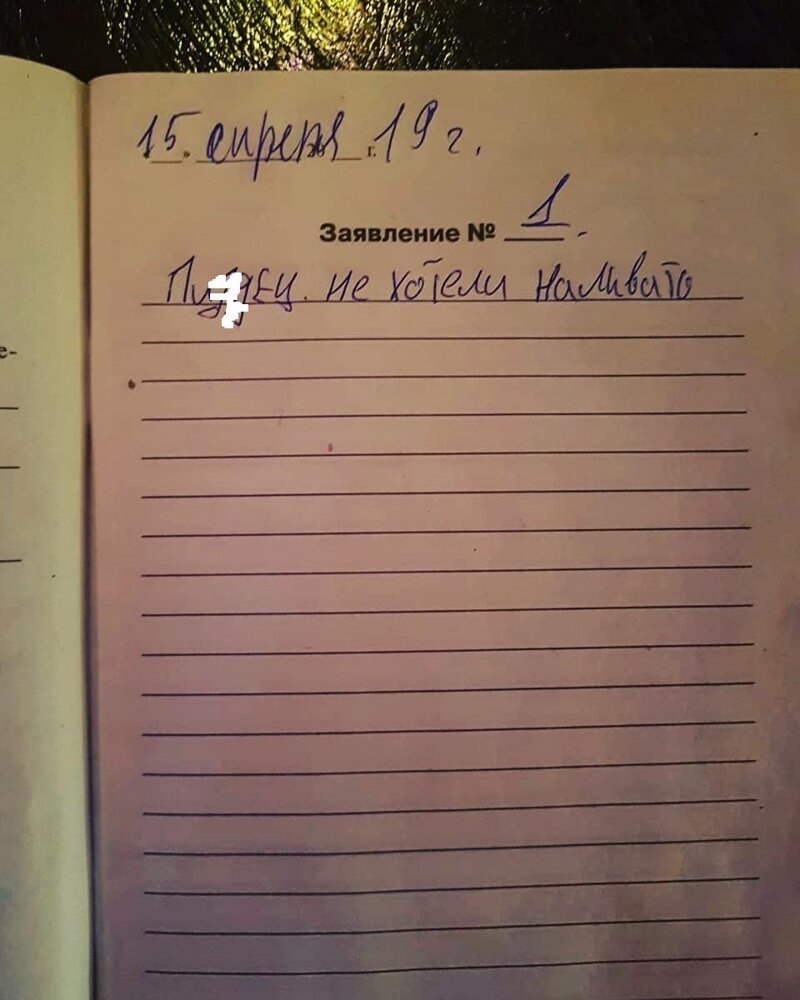 15. апреля 19 г.
г.
Заявление № 1.
не хотели наливать
е-